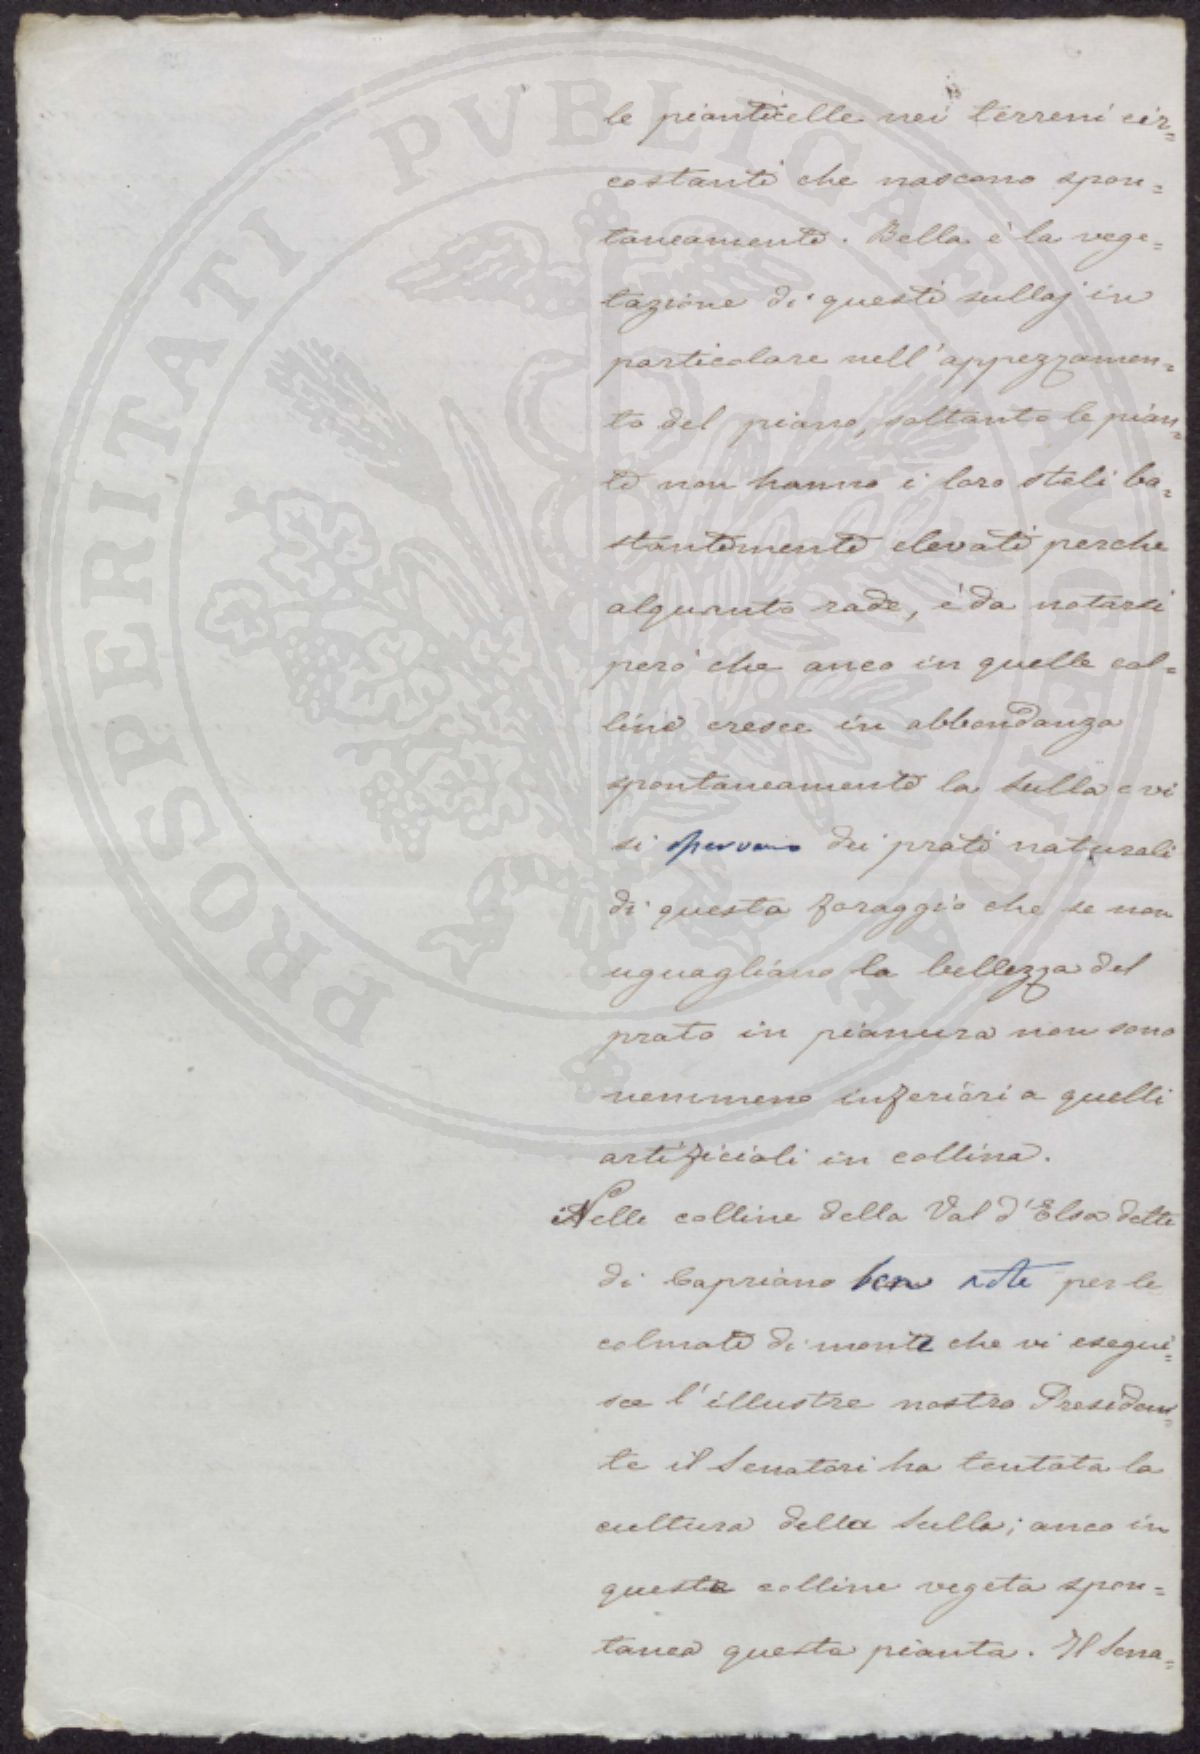 le pianticelle nei terreni cir=
costanti che nascono spon=
taneamente. Bella è la vege=
tazione di questi sullaj in
particolare nell'appezzamen=
to del piano, soltanto le pian=
te non hanno i loro steli ba=
stantemente elevati perche
alquanto rade, è da notarsi
però che anco in quelle col=
line cresce in abbondanza
spontaneamente la sulla e vi
si dei prati naturali
di questa foraggio che se non
uguagliano la bellezza del
prato in pianura non sono
nemmeno inferiori a quelli
artificiali in collina.
Nelle colline della Val d'Elsa dette
di Capriano ben note per le
colmate di monte che vi esegui=
sce l'illustre nostro Presiden=
te il Senatori ha tentata la
cultura della Sulla; anco in
queste colline vegeta spon=
tanea questa pianta. Il Sena=
PROSPERITATI PVBLICAE AVGENDAE